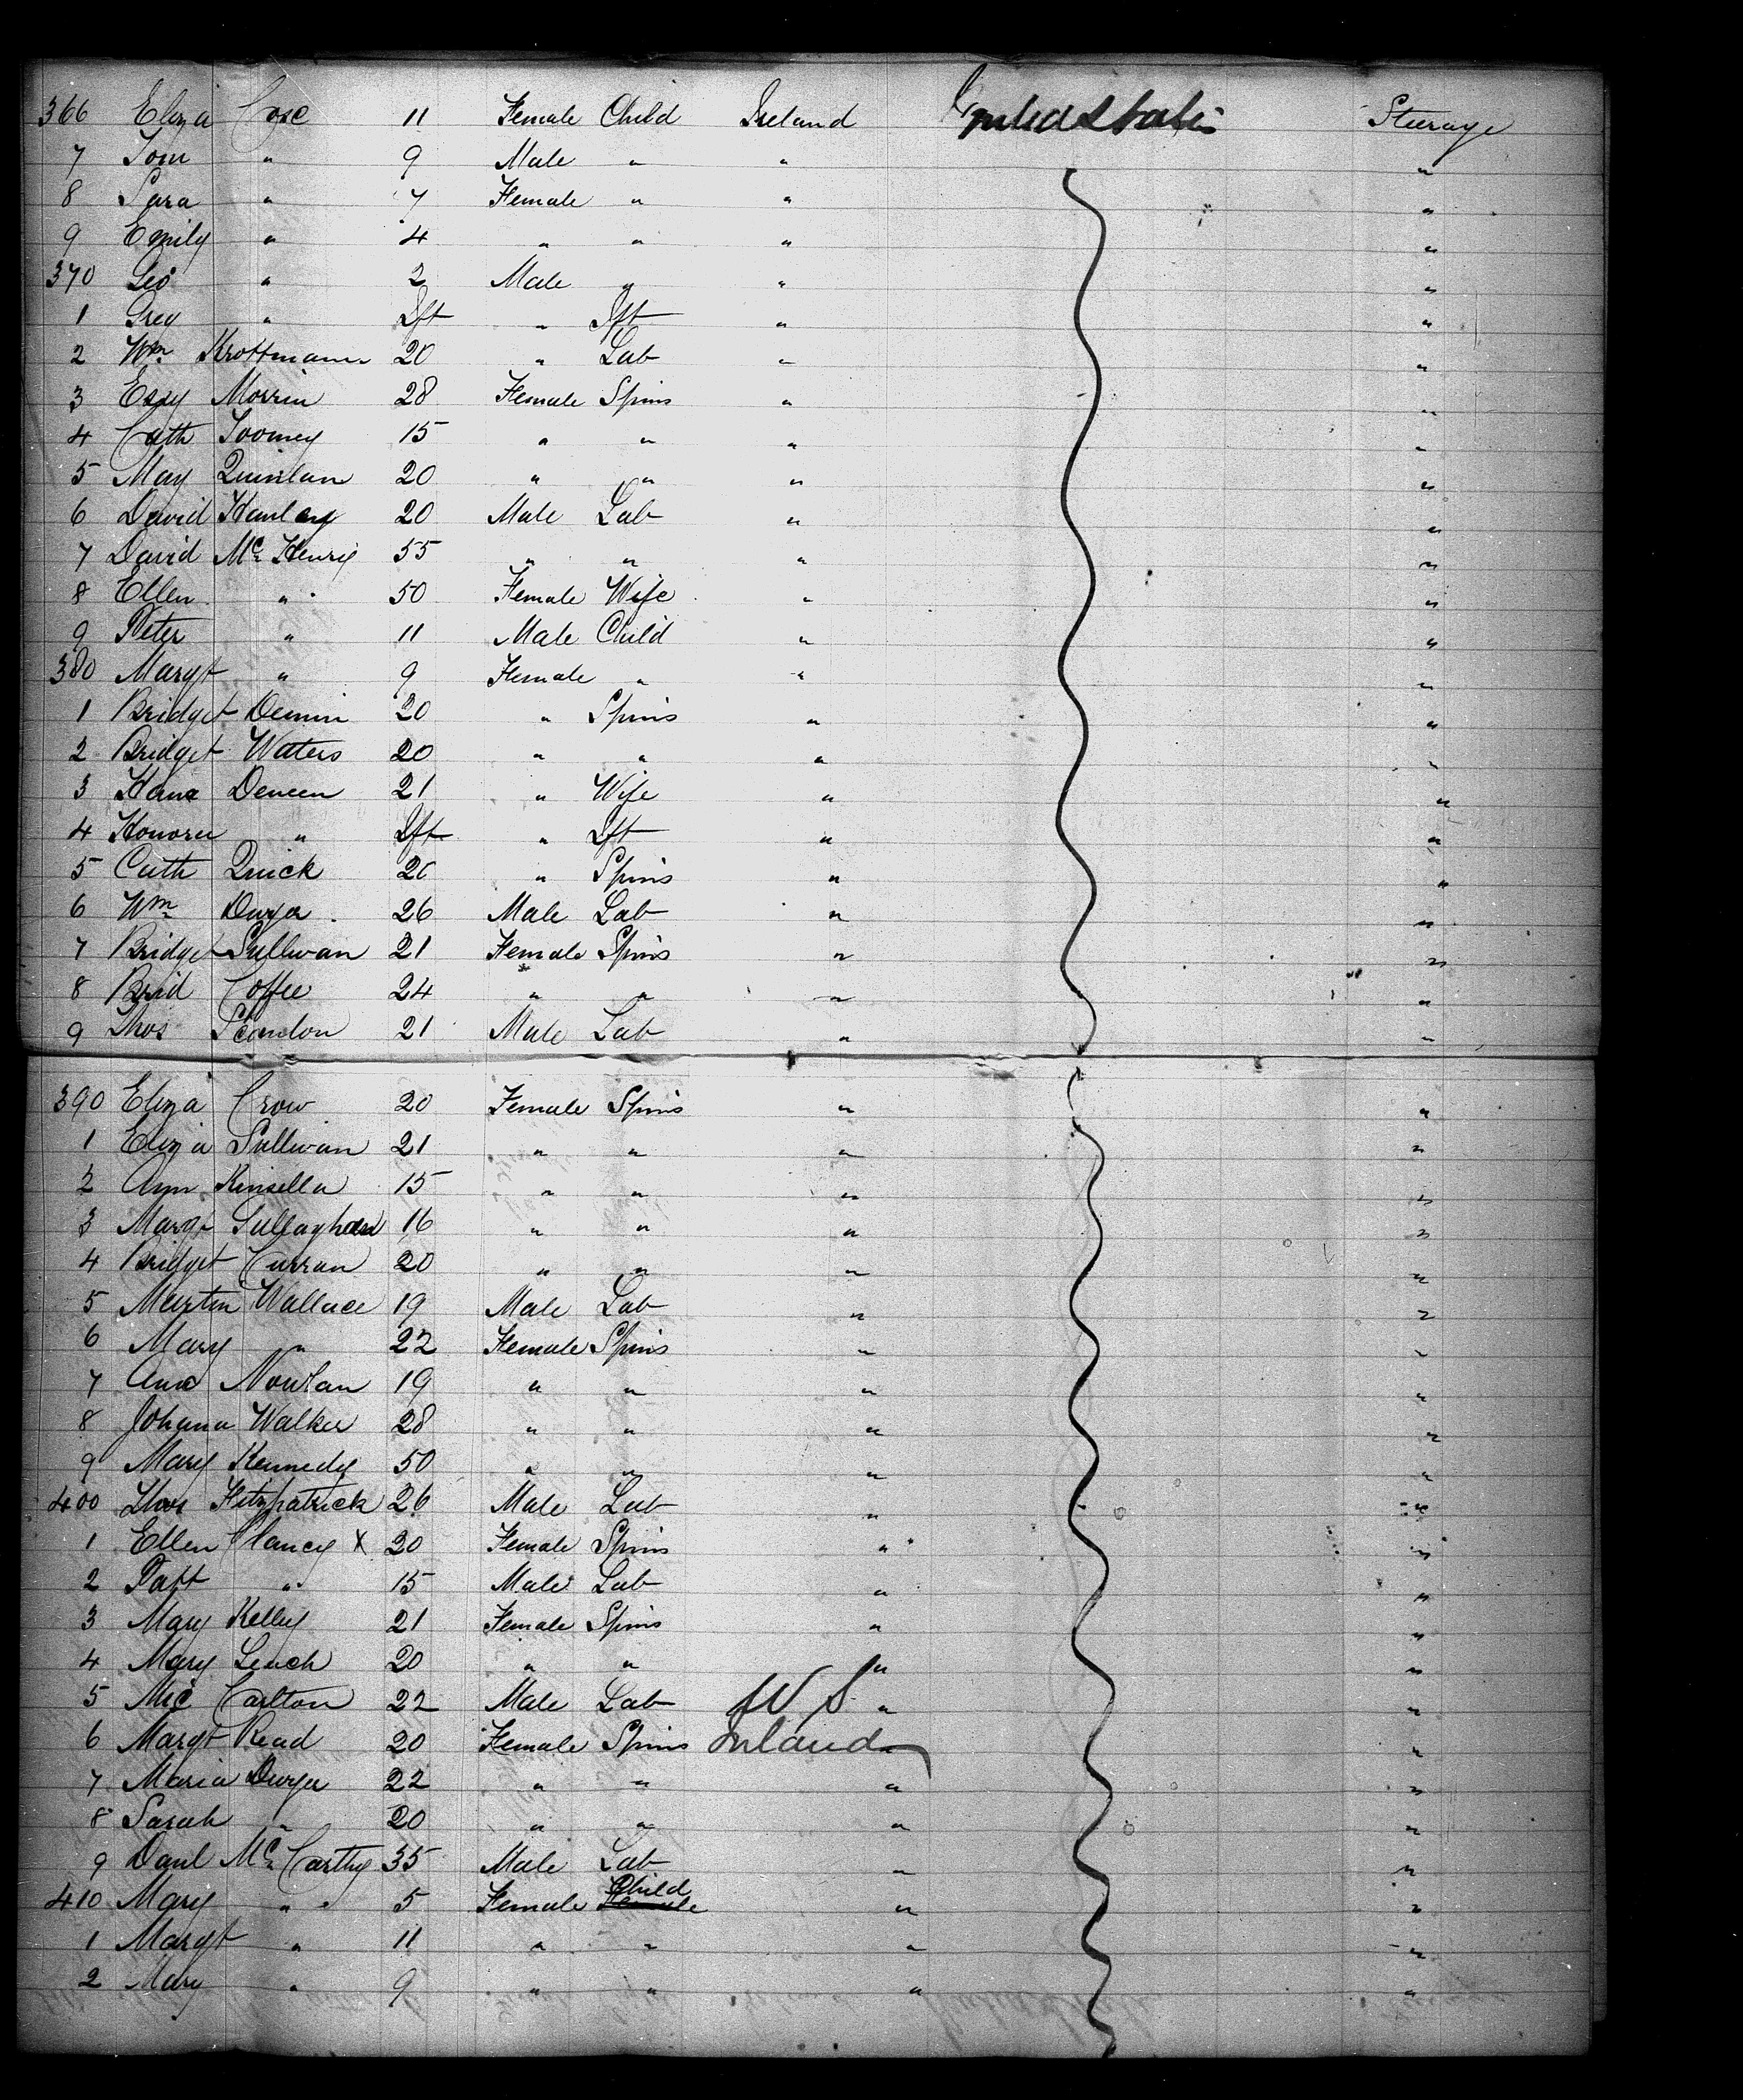 366 Eliza 11 Female Child Ireland United States Steerage
7 Tom " 9 Male " " "
8 Sara " 7 Female " " "
9 Emily " 4 " " " "
370 Geo " 2 Male " " "
1 " Ift " Ift " "
2 Wm Krottmann 20 " Lab " "
3 Essy Morrin 28 Female Spins " "
4 Cath Toomey 15 " " " "
5 May Quinlan 20 " " " "
6 David Hanley 20 Male Lab " "
7 David Mc Henry 55 " " " "
8 Ellen " 50 Female Wife " "
9 Peter " 11 Male Child " "
380 Margt " 9 Female " " "
1 Bridget 20 " Spins " "
2 Bridget Waters 20 " " " "
3 Deneen 21 " Wife " "
4 Honora " Ift " Ift " "
5 Cath Quick 20 " Spins " "
6 Wm 26 Male Lab " "
7 Bridget Sullivan 21 Female Spins " "
8 Brid Coffee 24 " " " "
9 Thos Scandon 21 Male Lab " "
390 Eliza Crow 20 Female Spins " "
1 Eliza Sullivan 21 " " " "
2 Ann Kinsella 15 " " " "
3 Margt 16 " " " "
4 Bridget Curran 20 " " " "
5 Martin Wallace 19 Male Lab " "
6 Mary " 22 Female Spins " "
7 Ann Nowlan 19 " " " "
8 Johana Walker 28 " " " "
9 Mary Kennedy 50 " " " "
400 Thos Fitzpatrick 26 Male Lab " "
1 Ellen Clancy X 20 Female Spins " "
2 Patt " 15 Male Lab " "
3 Mary Kelley 21 Female Spins " "
4 Mary Leach 20 " " " "
5 Mic Carlton 22 Male Lab U S " "
6 Margt Read 20 Female Spins Ireland "
7 Maria Dwyer 22 " " " "
8 Sarah " 20 " " " "
9 Danl Mc Carthy 35 Male Lab " "
410 Mary " 5 Female Child " "
1 Margt " 11 " " " "
2 Mary " 9 " " " "